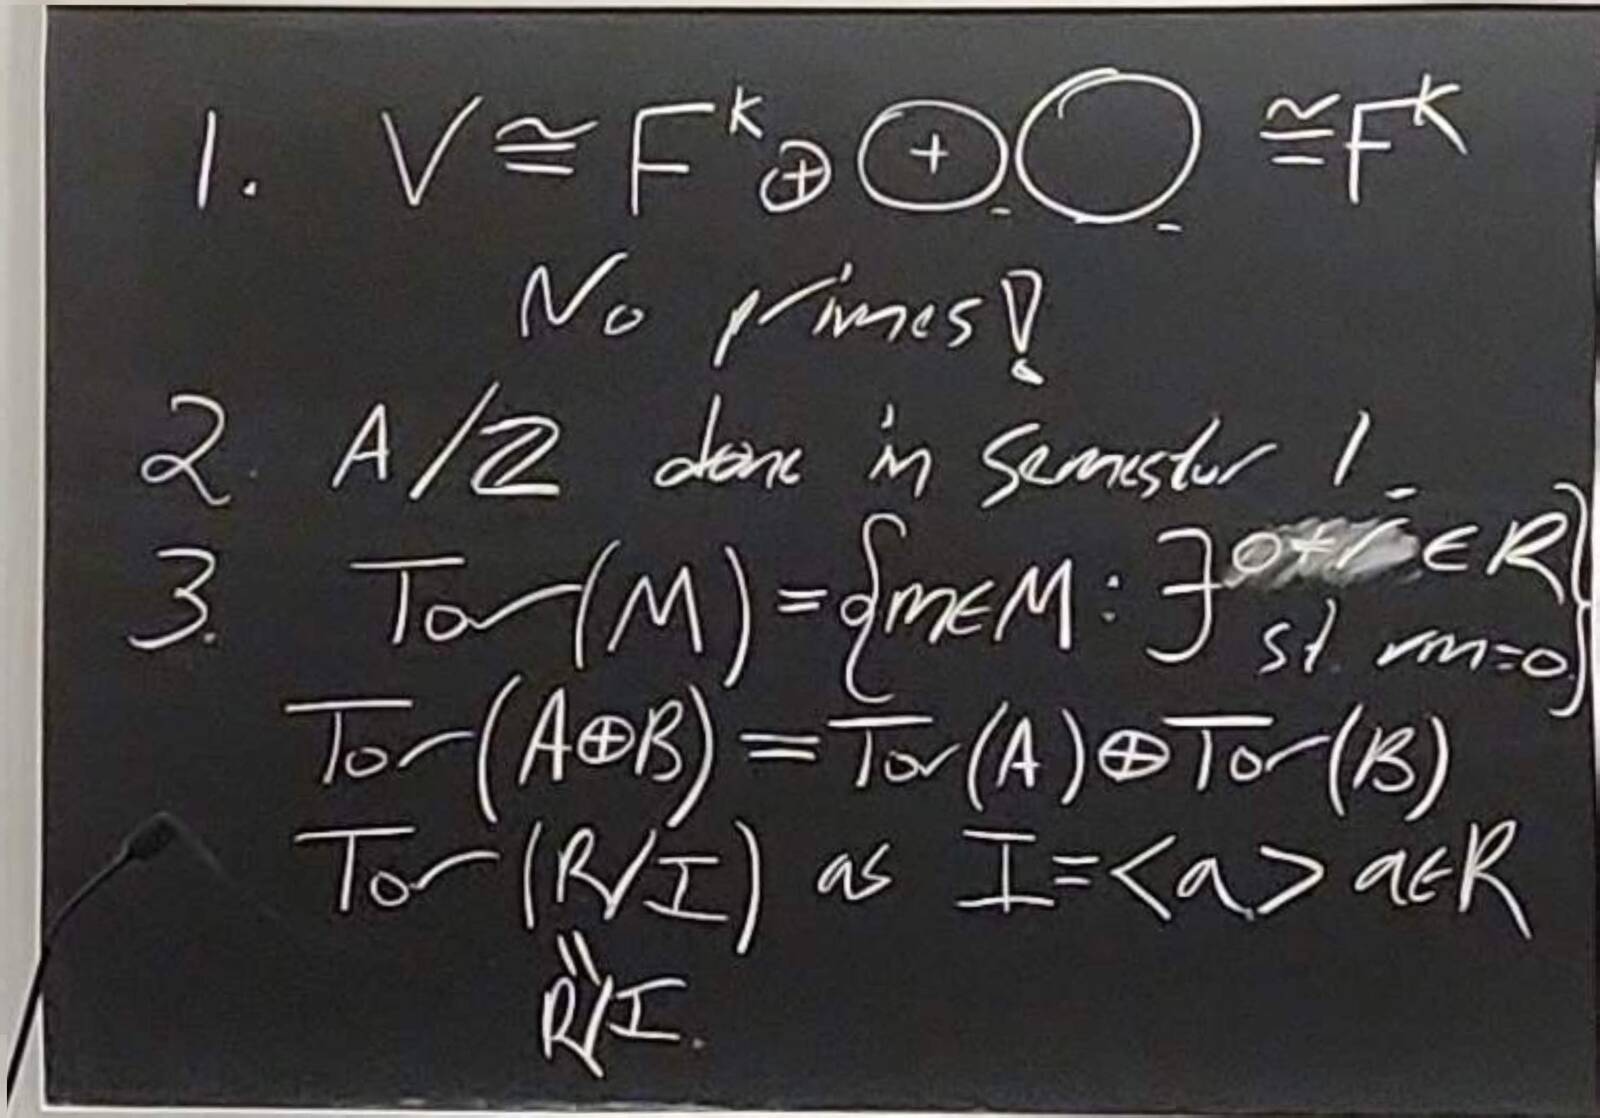 1. V ≅ F^k ⊕ ⊕ ◯ ≅ F^k
No primes!
2. A/ℤ done in semestur 1.
3. Tor(M) = {m∈M : ∃ 0≠r ∈ R st rm=0}
Tor(A⊕B) = Tor(A) ⊕ Tor(B)
Tor(R/I) as I = <a> a∈R
"
R/I.